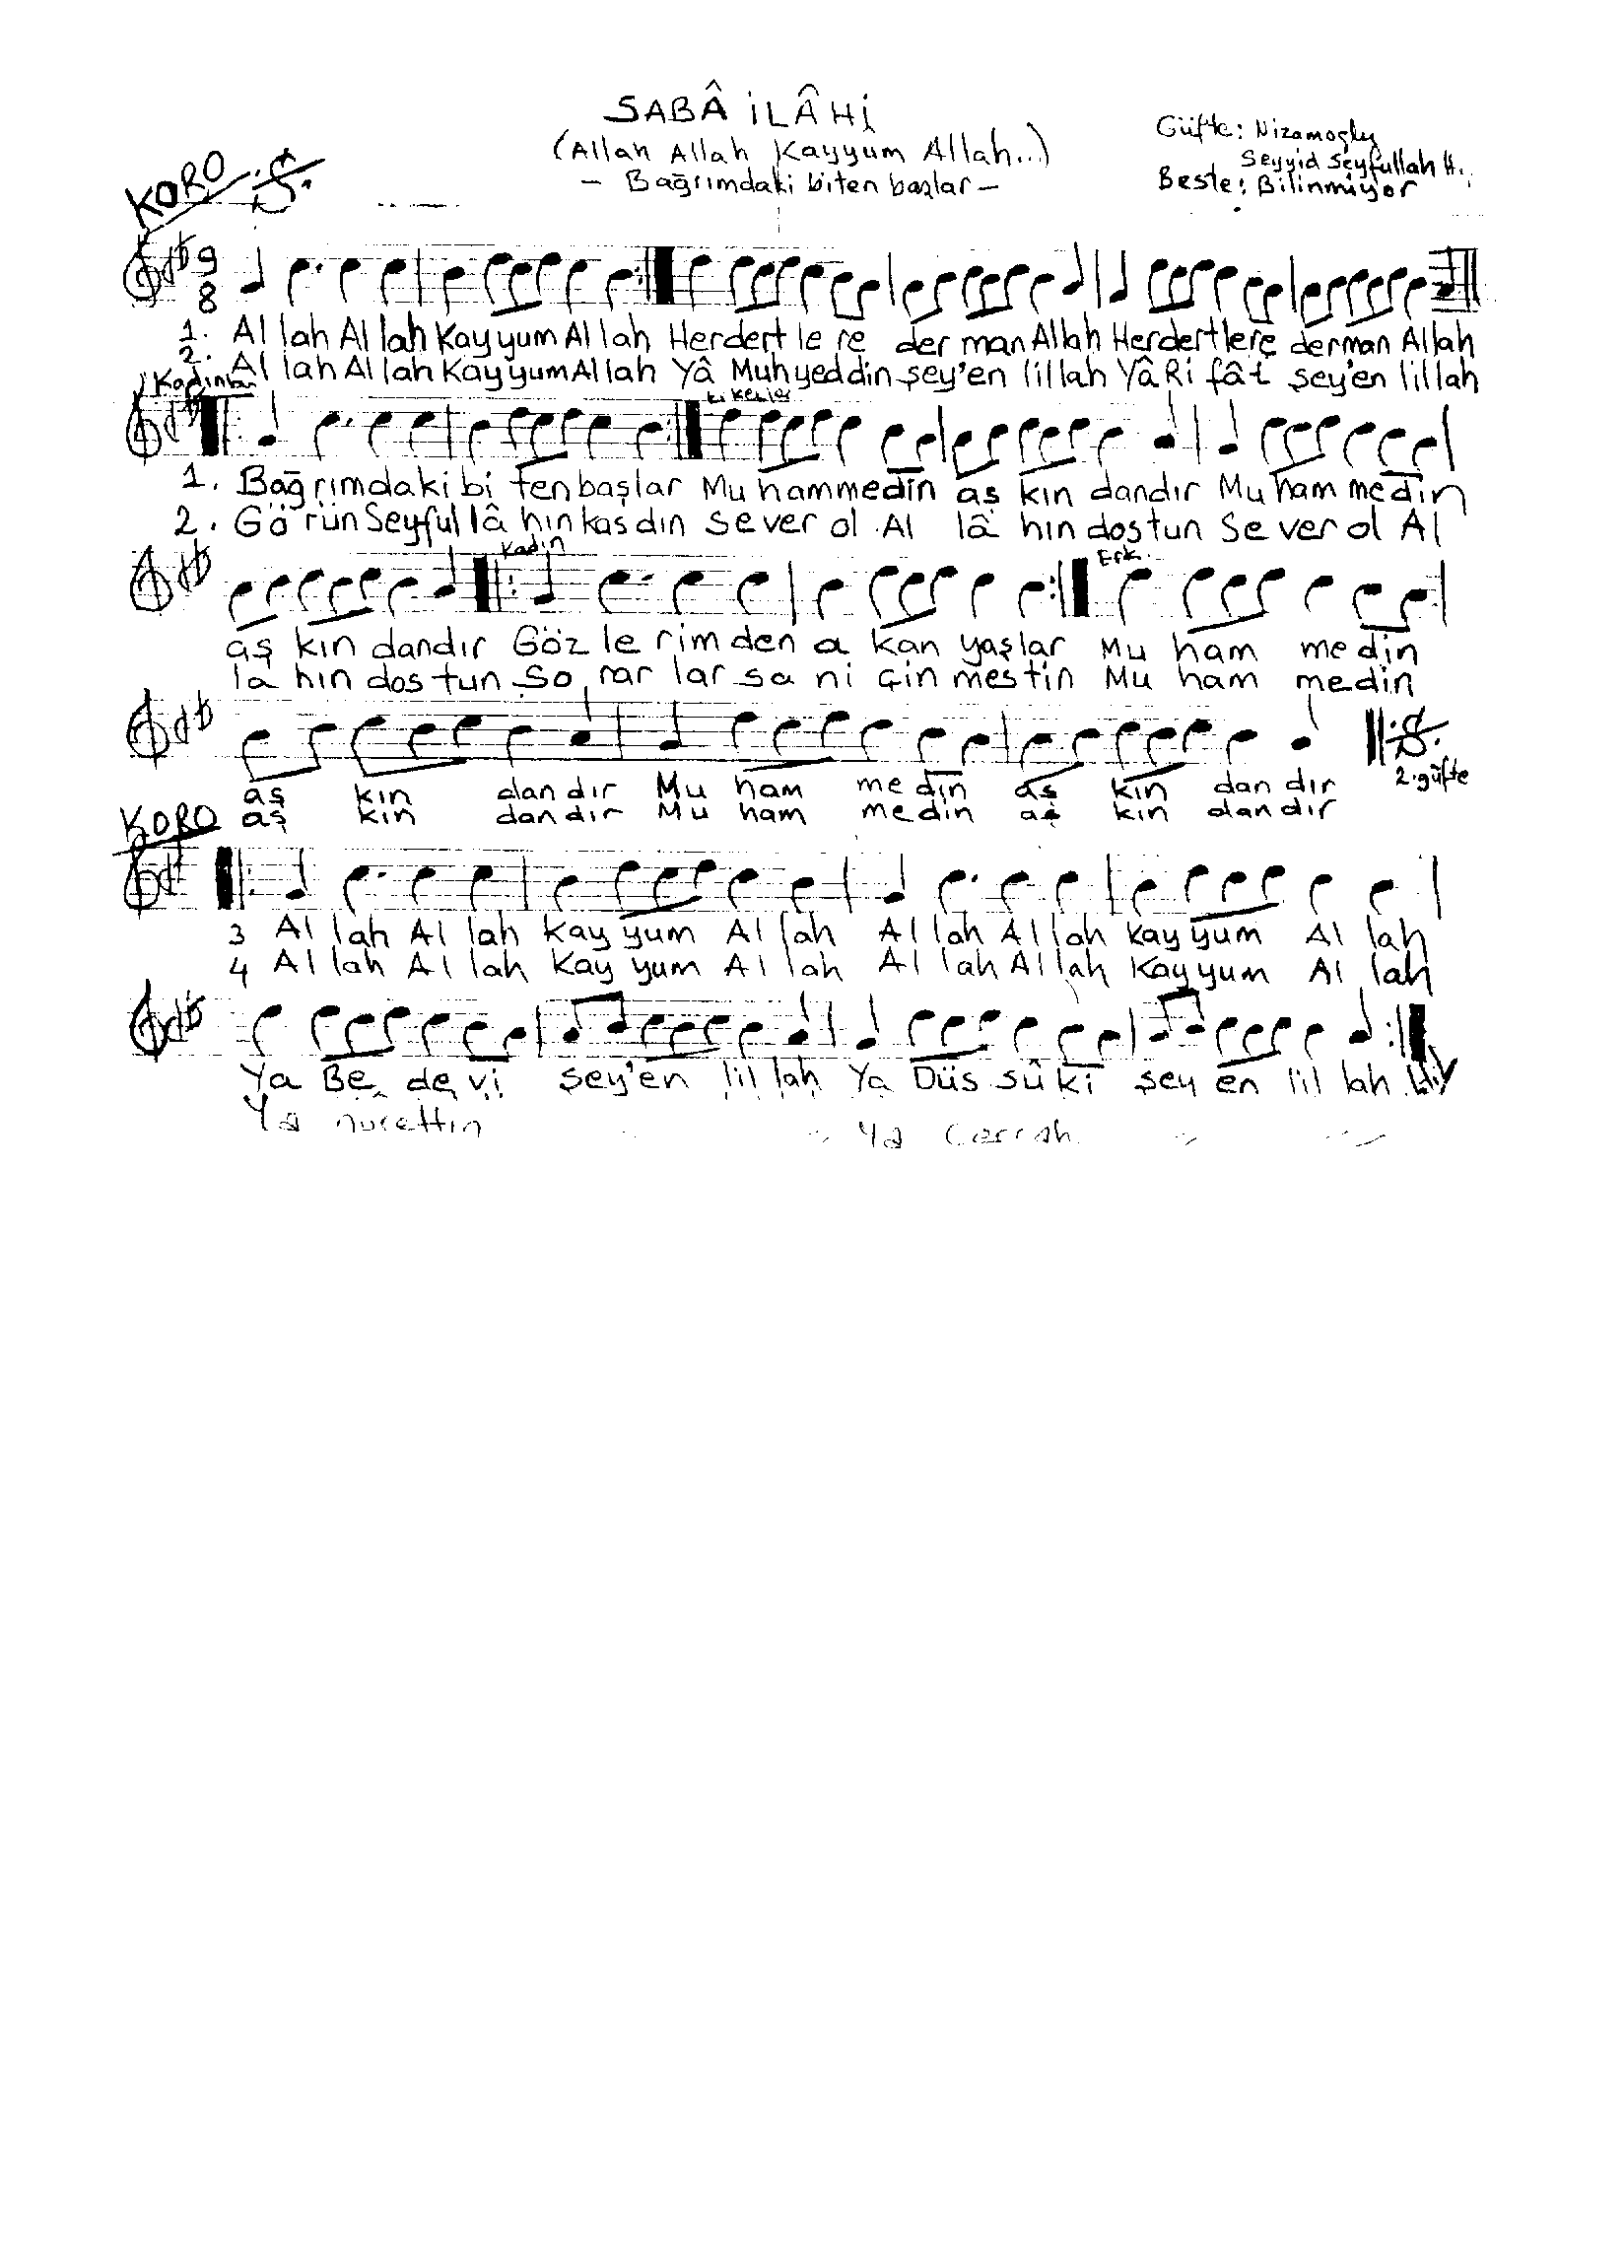 SABÂ İLÂHİ
(Allah Allah Kayyum Allah...)
- Bağrımdaki biten başlar -
Güfte: Nizamoğlu
Seyyid Seyfullah H.
Beste: Bilinmiyor
KORO
9
8
1. Al lah Al lah Kay yum Al lah Herdert le re der man Allah Herdertlere derman Allah
2. Al lah Al lah Kay yum Al lah Yâ Muhyeddin şey'en lillah Yâ Ri fât şey'en lillah
Kadınlar
Erkekler
1. Bağrımdaki bi ten başlar Mu hammedin aş kın dandır Mu ham medin
2. Gö rün Seyful lâ hın kasdın Se ver ol Al lâ hın dostun Se ver ol Al
Kadın
Erk.
aş kın dandır Göz le rim den a kan yaşlar Mu ham medin
la hın dos tun So rar lar sa ni çin mestin Mu ham medin
aş kın dan dır Mu ham me din aş kın dan dır
2. güfte
aş kın dan dır Mu ham me din aş kın dan dır
KORO
3 Al lah Al lah Kay yum Al lah Al lah Al lah Kay yum Al lah
4 Al lah Al lah Kay yum Al lah Al lah Al lah Kay yum Al lah
Ya Be de vi şey'en lil lah Ya Düs sû ki şey en lil lah
Ya nurettin " " Ya Cerrah " "